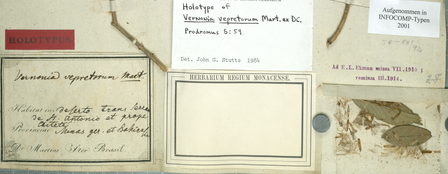 HOLOTYPUS
Holotype of
Vernonia vepretorum Mart. ex DC.
Prodromus 5:59
Det. John G. Stutts 1984
Aufgenommen in
INFOCOMP-Typen
2001
Vernonia vepretorum Mart.
Habitat in deserto trans Serra
de S. Antonio et prope
Provinciae Minas ger. et Bahiae
Dr. Martius Iter Brasil.
HERBARIUM REGIUM MONACENSE.
Ad E.L. Ekman missa VII.1910;
remissa III.1914.